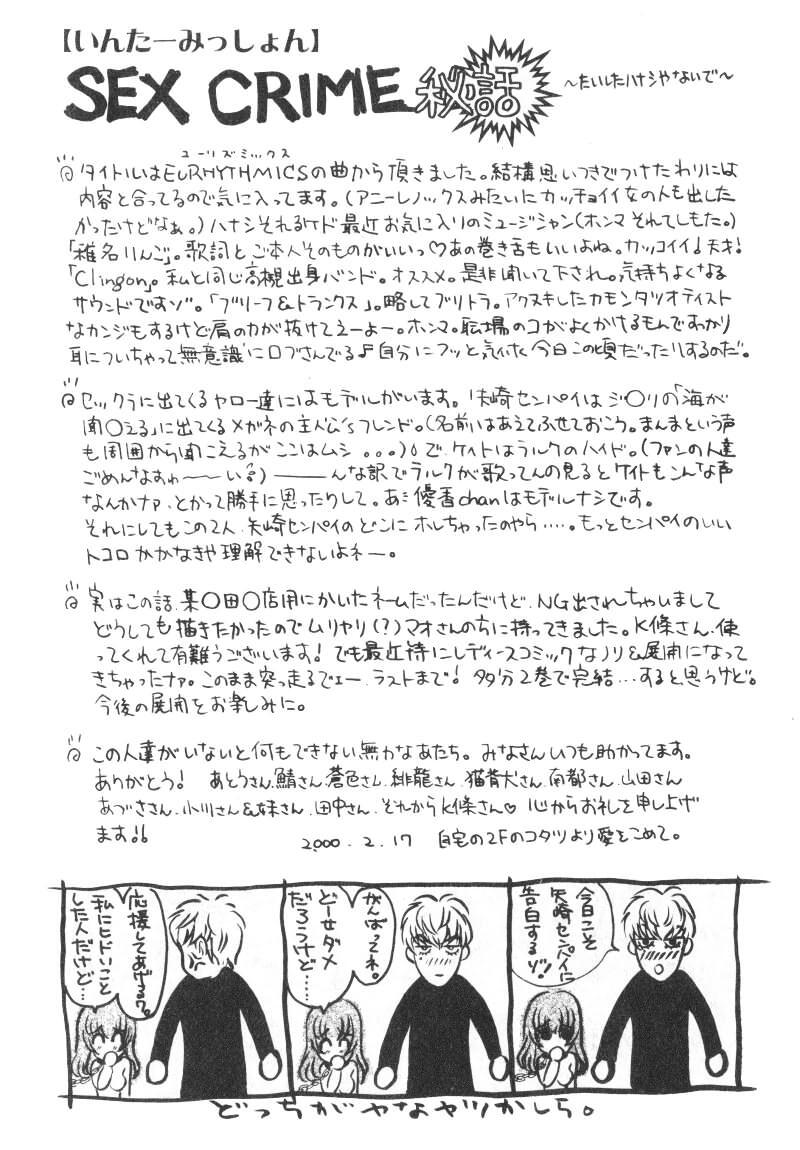 【いんたーみっしょん】
SEX CRIME 秘話 〜たいしたハナシやないで〜
ユーリズミックス
タイトルはEURHYTHMICSの曲から頂きました。結構思いつきでつけたわりには
内容と合ってるので気に入ってます。(アニーレノックスみたいにカッチョイイ女の人も出した
かったけどなぁ。)ハナシそれるケド最近お気に入りのミュージシャン(ホンマそれてしもた。)
「椎名りんご」。歌詞とご本人そのものがいいっ♡あの巻き舌もいいよね。カッコイイ!天才!
「Clingon」。私と同じ高槻出身バンド。オススメ。是非聞いて下され。気持ちよくなる
サウンドですゾ。「ブリーフ&トランクス」。略してブリトラ。アクヌキしたカモンタツオテイスト
なカンジもするけど肩の力が抜けてえーよー。ホンマ。職場のコがよくかけるもんでわかり
耳についちゃって無意識に口ずさんでる♪自分にフッと気付く今日この頃だったりするのだ。
セックラに出てくるヤロー達にはモデルがいます。矢崎センパイはジ〇リの「海が
聞〇える」に出てくるメガネの主人公'sフレンド。(名前はあえてふせておこう。まんまという声
も周囲から聞こえるがここはムシ。。。)で、ケイトはラルクのハイド。(ファンの人達
ごめんなすぁ〜〜い)――んな訳でラルクが歌ってんの見るとケイトもこんな声
なんかナァ、とかって勝手に思ったりして。あ、優香chanはモデルナシです。
それにしてもこの2人、矢崎センパイのどこにホレちゃったのやら‥‥。もっとセンパイのいい
トコロかかなきゃ理解できないよネー。
実はこの話、某〇田〇店用にかいたネームだったんだけど、NG出されちゃいまして
どうしても描きたかったのでムリヤリ(?)マオさんのちに持ってきました。K條さん、使
ってくれて有難うございます!でも最近特にレディースコミックなノリ&展開になって
きちゃったナァ。このまま突っ走るでェー、ラストまで!多分2巻で完結…すると思うけど。
今後の展開をお楽しみに。
この人達がいないと何もできない無力なあたち。みなさんいつも助かってます。
ありがとう! あとうさん、鯖さん、蒼色さん、緋龍さん、猫背犬さん、南都さん、山田さん
あづささん、小川さん&妹さん、田中さん、それからK條さん♡ 心からお礼を申し上げ
ます!!
2000.2.17 自宅の2Fのコタツより愛をこめて。
今日こそ
矢崎センパイに
告白するゾ!
がんばってネ。
どーせダメ
だろうけど…
応援してあげるワ。
私にヒドいこと
した人だけど…
どっちがヤなヤツかしら。